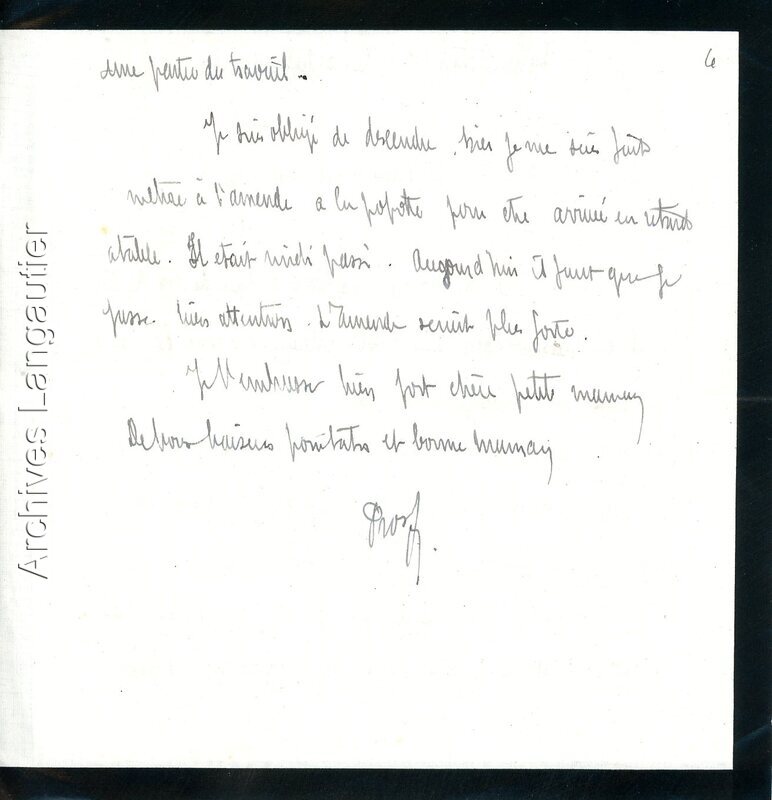 6
une partie du travail.
Je suis obligé de descendre. hier je me suis fait
mettre à l'amende a la popotte pour etre arrivé en retard
a table. Il etait midi passé. Aujourd'hui il faut que je
fasse bien attention. L'amende serait plus forte.
Je t'embrasse bien fort chère petite maman
De bons baisers pour et bonne maman
Archives Langautier